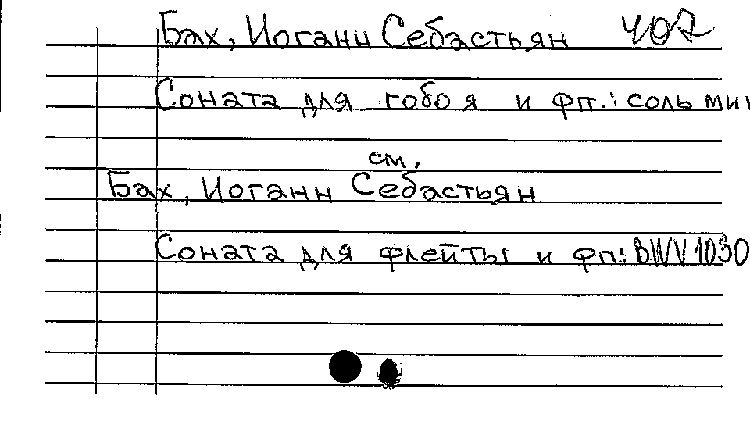 Бах, Иоганн Себастьян 407
Соната для гобоя и фп.: соль мин
см.
Бах, Иоганн Себастьян
Соната для флейты и фп: BWV 1030